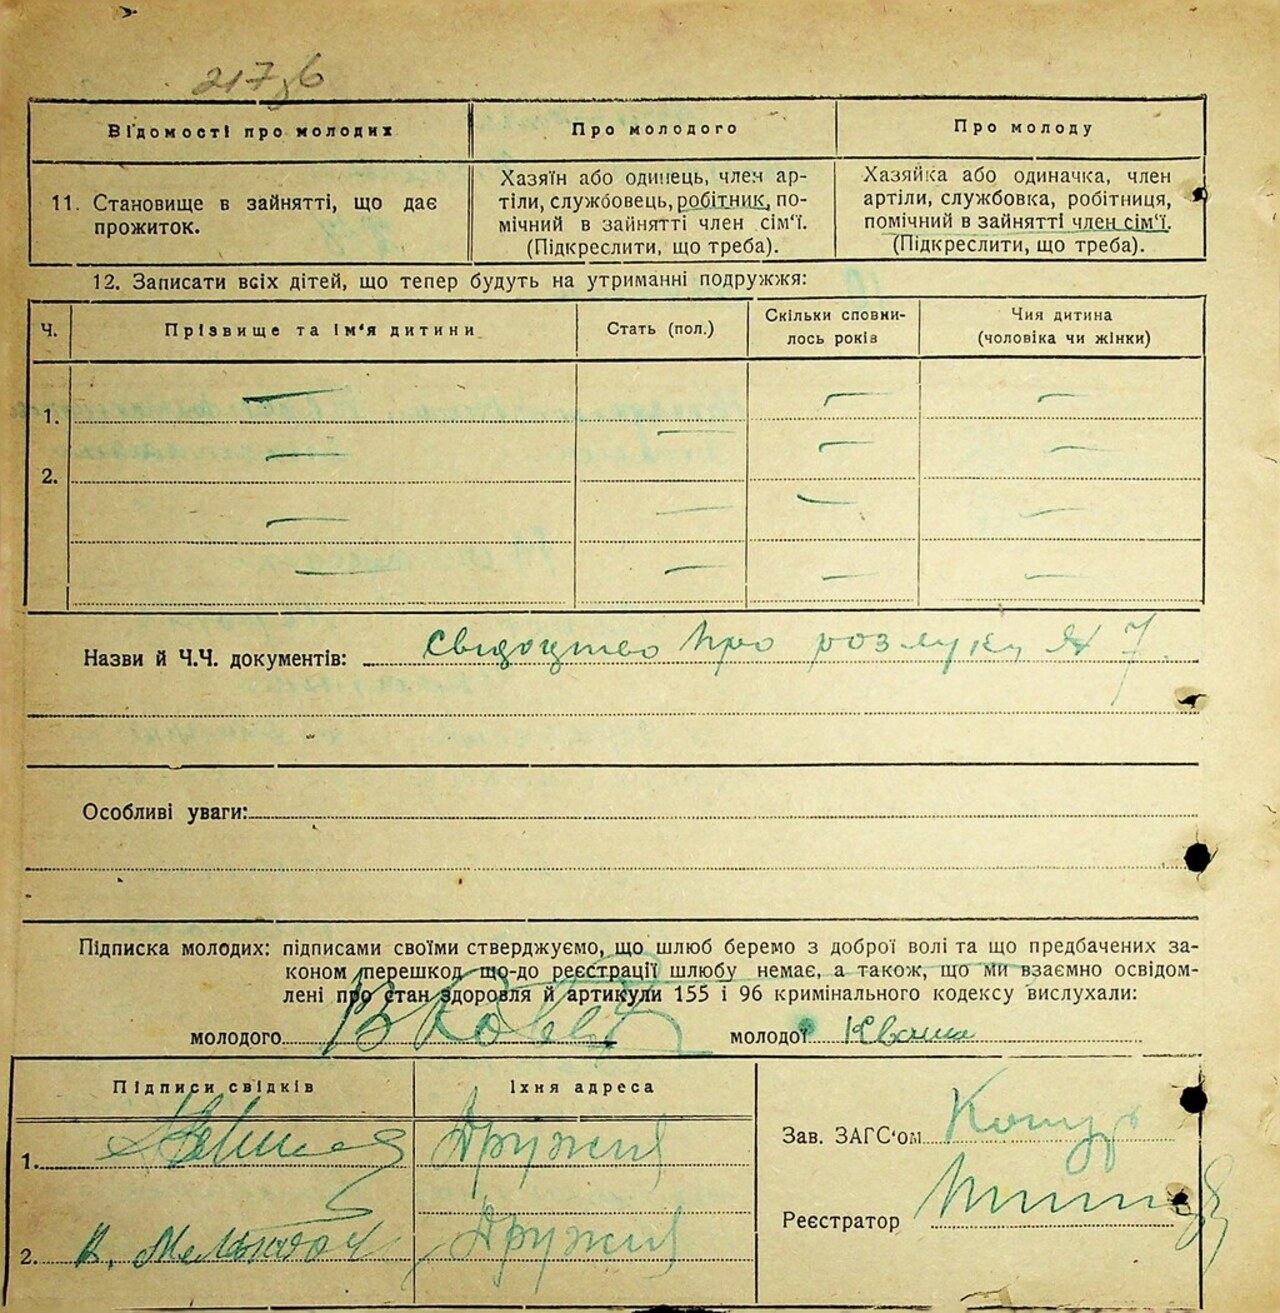 217зв
Відомості про молодих
Про молодого
Про молоду
11. Становище в зайнятті, що дає
прожиток.
Хазяїн або одинець, член ар-
тіли, службовець, робітник, по-
мічний в зайнятті член сім'ї.
(Підкреслити, що треба).
Хазяйка або одиначка, член
артіли, службовка, робітниця,
помічний в зайнятті член сім'ї.
(Підкреслити, що треба).
12. Записати всіх дітей, що тепер будуть на утриманні подружжя:
Ч.
Прізвище та ім'я дитини
Стать (пол.)
Скільки сповни-
лось років
Чия дитина
(чоловіка чи жінки)
1. — — — —
2. — — — —
— — — —
— — — —
Назви й Ч.Ч. документів: свідоцтво про розлуку № 7
Особливі уваги:
Підписка молодих: підписами своїми стверджуємо, що шлюб беремо з доброї волі та що предбачених за-
коном перешкод що-до реєстрації шлюбу немає, а також, що ми взаємно освідом-
лені про стан здоровля й артикули 155 і 96 кримінального кодексу вислухали:
молодого
молодої Кваша
Підписи свідків
Їхня адреса
1. Дружня
2. Дружня
Зав. ЗАГС'ом
Реєстратор